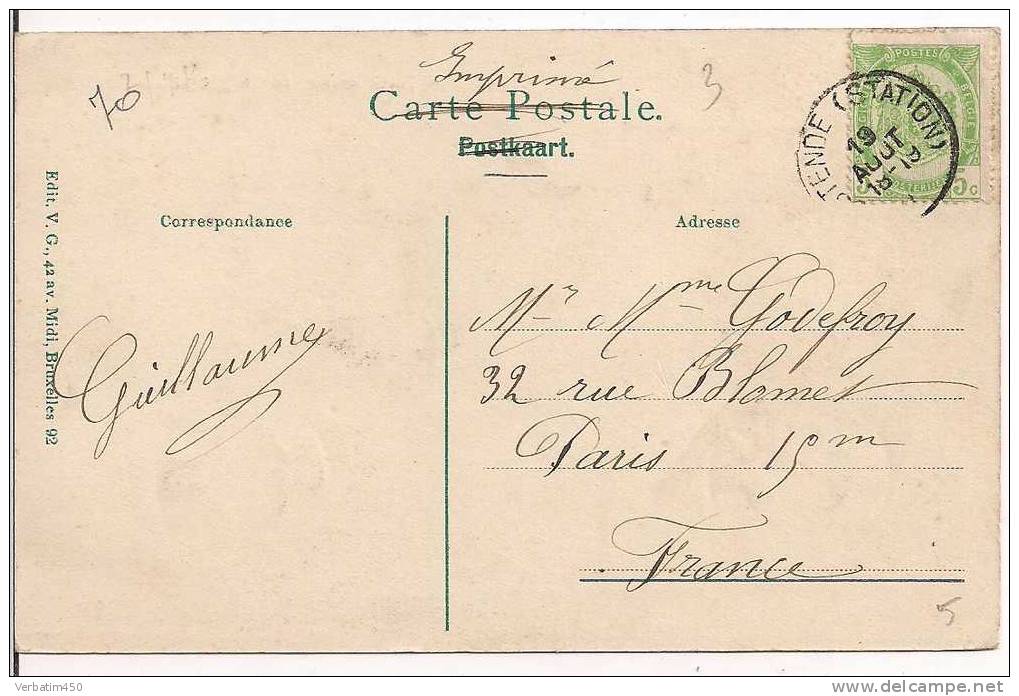 70
3
Imprimé
Carte Postale.
Postkaart.
POSTES
BELGIE
5 C
STENDE (STATION)
19
AOUT
18-19
Edit. V. G., 42 av. Midi, Bruxelles 92
Correspondance
Guillaume
Adresse
Mr Mme Godefroy
32 rue Blomet
Paris 15m
France
5
Verbatim450
delcampe.net